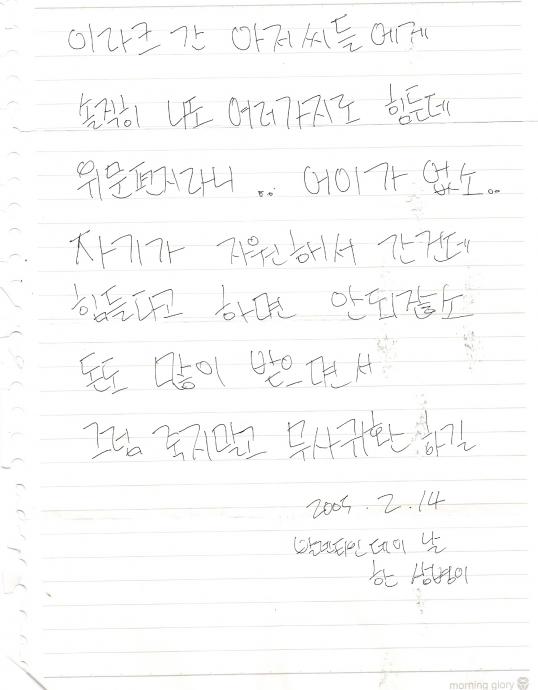 이라크 간 아저씨들에게
솔직히 나도 여러가지로 힘든데
위문편지라니 .. 어이가 없소..
자기가 지원해서 간건데
힘들다고 하면 안되겠소
돈도 많이 받으면서
그럼 죽지말고 무사귀환 하길
2005. 2. 14
발렌타인데이 날
한 상병이
morning glory